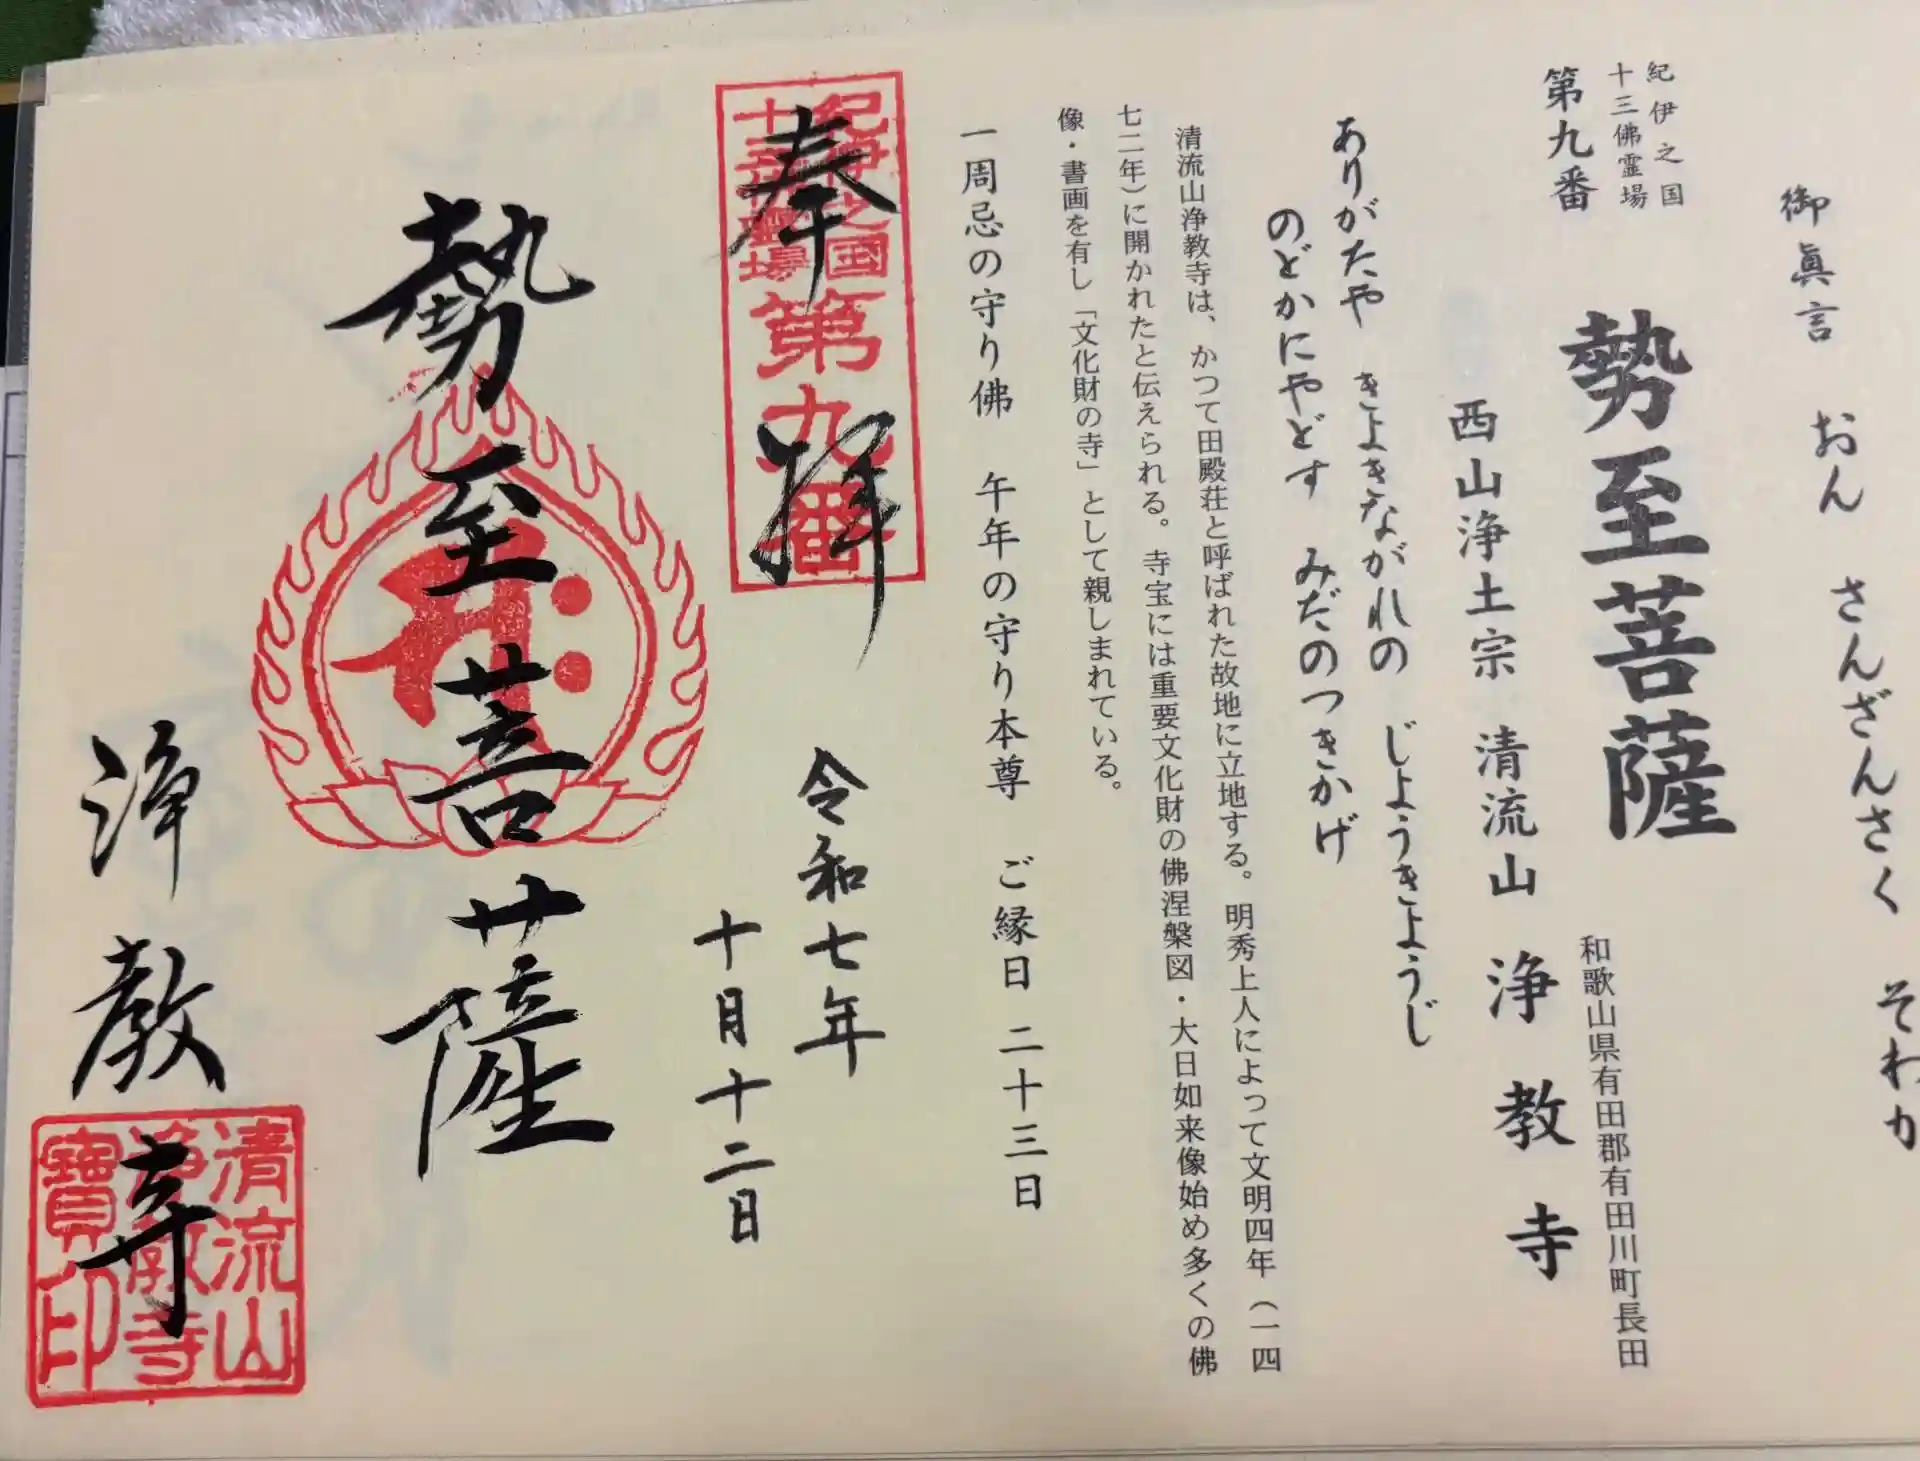 御眞言　おん　さんざんさく　そわか
紀伊之国
十三佛霊場
第九番
勢至菩薩
和歌山県有田郡有田川町長田
西山浄土宗　清流山　浄教寺
ありがたや　きよきながれの　じようきようじ
のどかにやどす　みだのつきかげ
清流山浄教寺は、かつて田殿荘と呼ばれた故地に立地する。明秀上人によって文明四年（一四
七二年）に開かれたと伝えられる。寺宝には重要文化財の佛涅槃図・大日如来像始め多くの佛
像・書画を有し「文化財の寺」として親しまれている。
一周忌の守り佛　午年の守り本尊　ご縁日 二十三日
紀伊之国
十三佛霊場
第九番
奉拝
令和七年
十月十二日
勢至菩薩
浄教寺
清流山
浄教寺
寶印